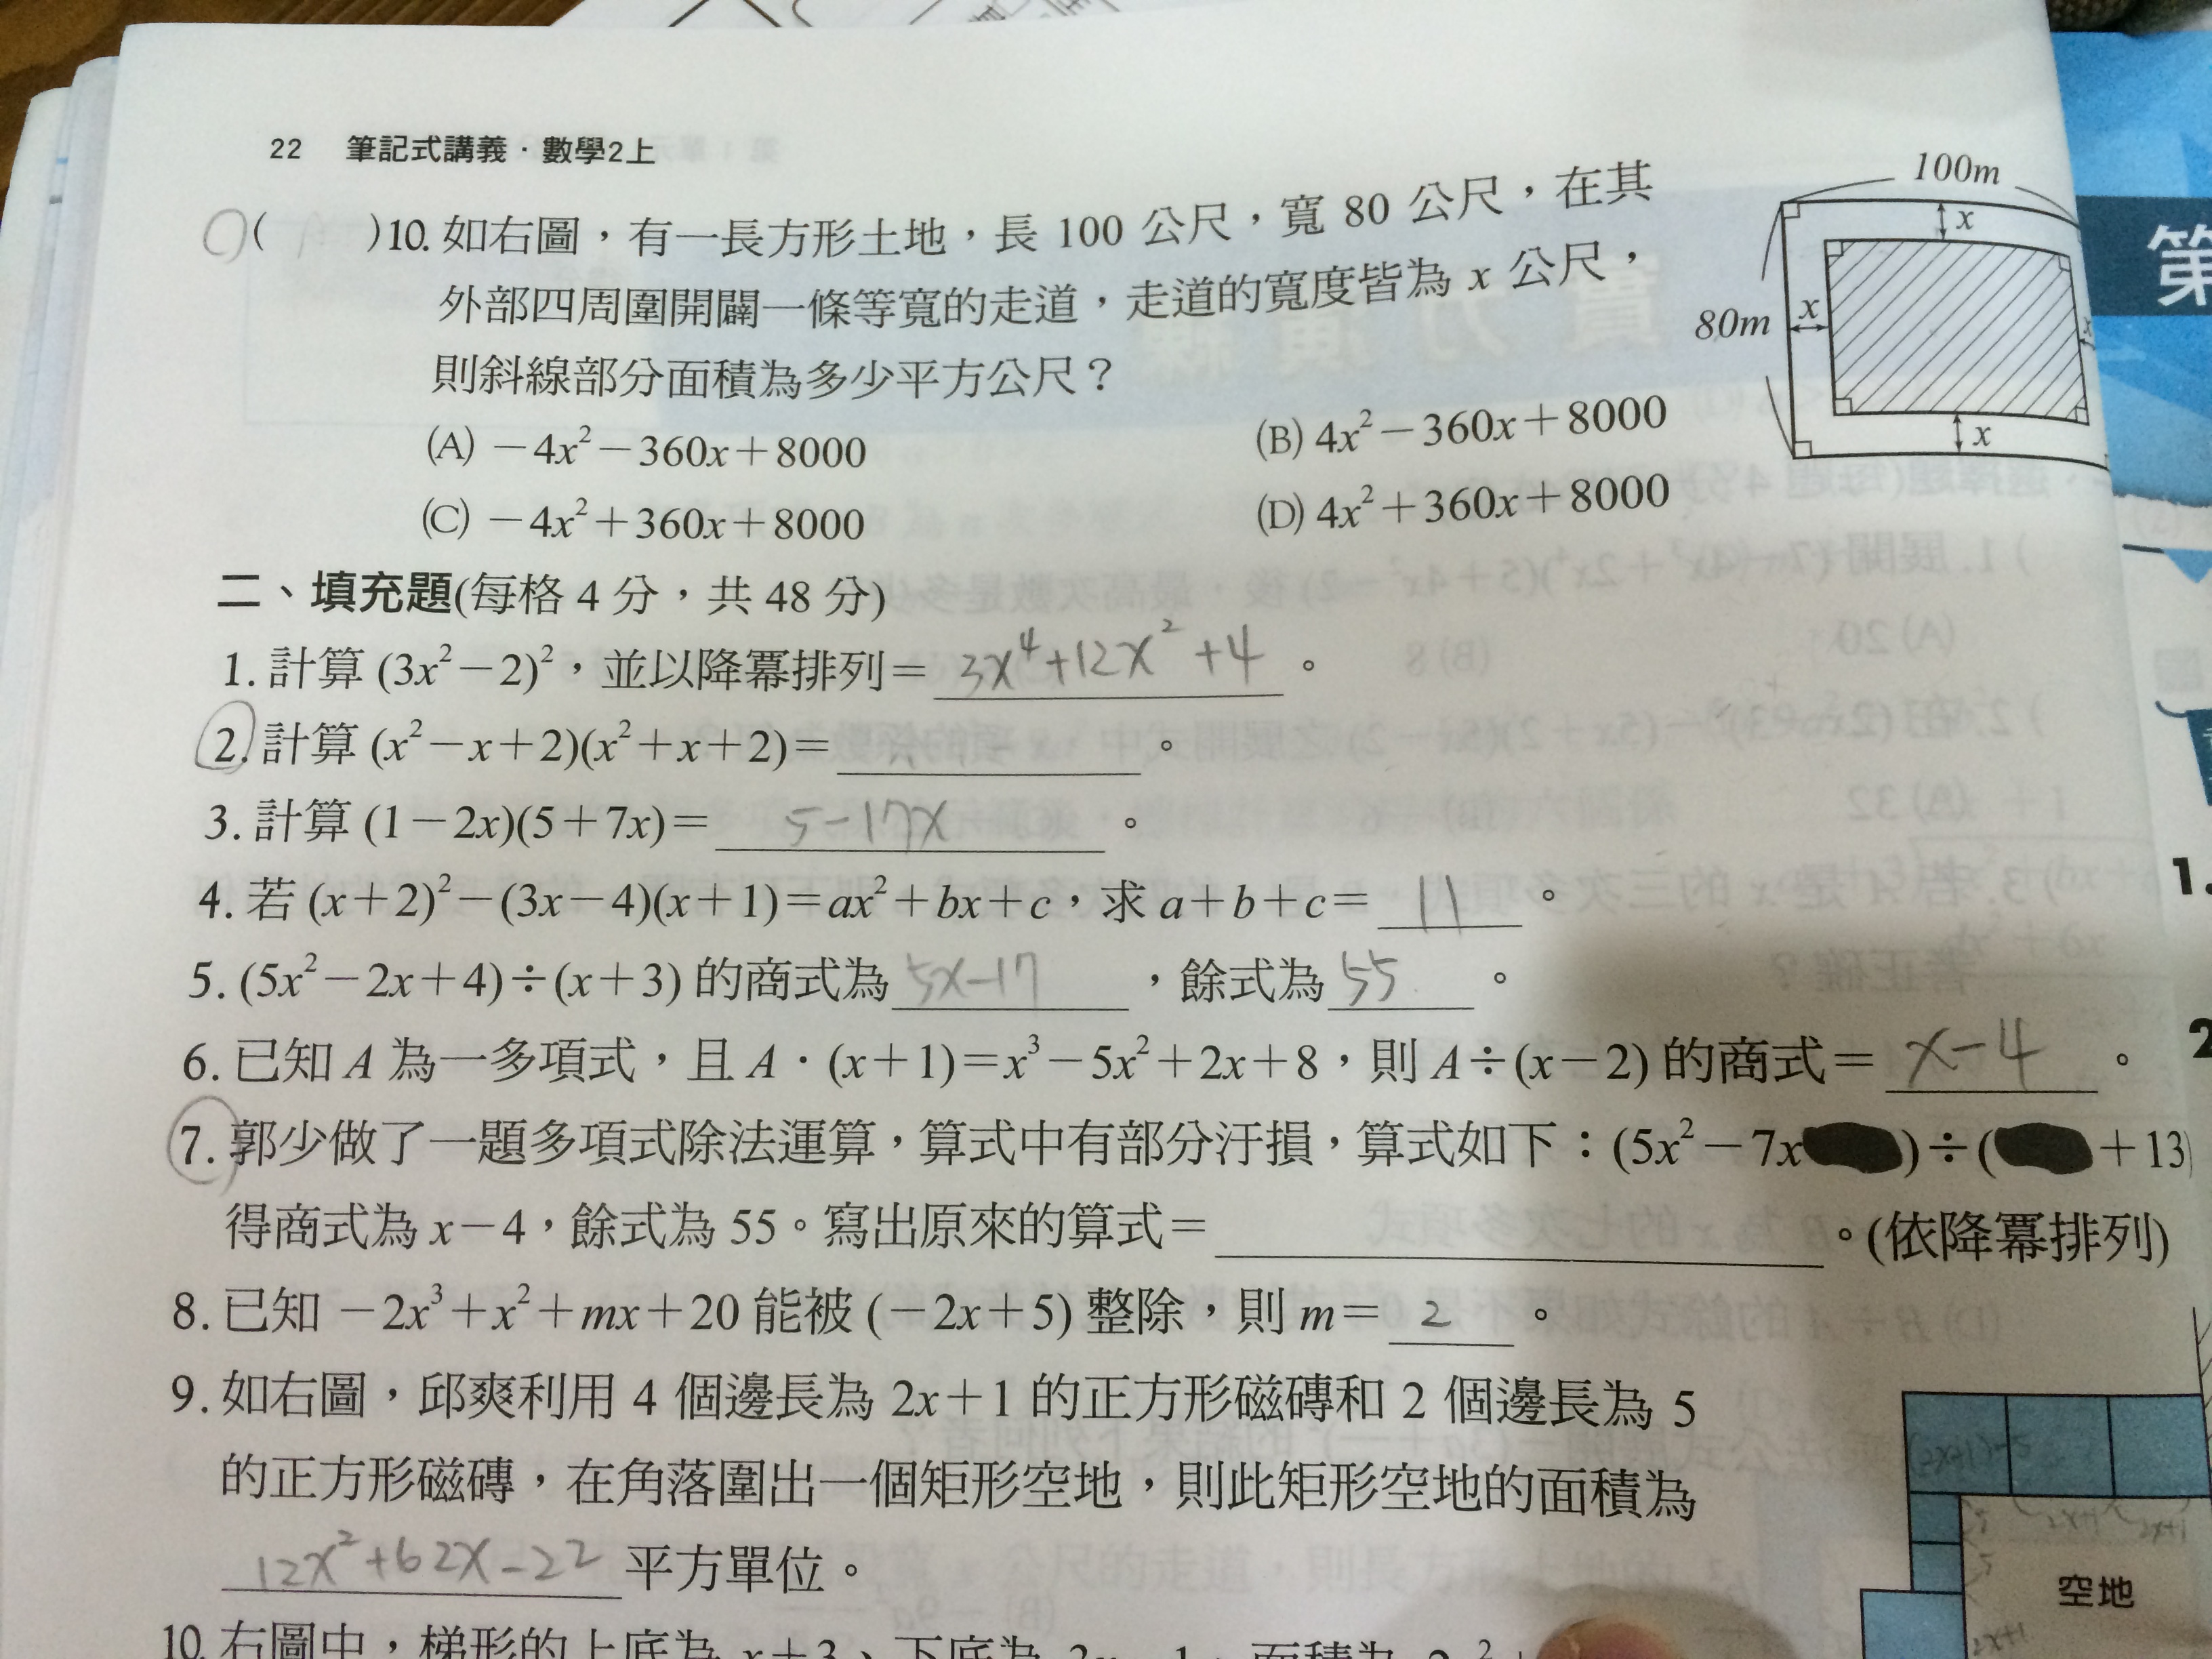 22 筆記式講義·數學2上
( )10. 如右圖，有一長方形土地，長 100 公尺，寬 80 公尺，在其
外部四周圍開闢一條等寬的走道，走道的寬度皆為 x 公尺，
則斜線部分面積為多少平方公尺？
(A) －4x²－360x＋8000 (B) 4x²－360x＋8000
(C) －4x²＋360x＋8000 (D) 4x²＋360x＋8000
100m
x
80m
x
x
x
第
二、填充題(每格 4 分，共 48 分)
1. 計算 (3x²－2)²，並以降冪排列＝ 3x⁴+12x²+4 。
2. 計算 (x²－x＋2)(x²＋x＋2)＝ 。
3. 計算 (1－2x)(5＋7x)＝ 5-17x 。
4. 若 (x＋2)²－(3x－4)(x＋1)＝ax²＋bx＋c，求 a＋b＋c＝ 11 。
5. (5x²－2x＋4)÷(x＋3) 的商式為 5x-17 ，餘式為 55 。
6. 已知 A 為一多項式，且 A·(x＋1)＝x³－5x²＋2x＋8，則 A÷(x－2) 的商式＝ x-4 。
7. 郭少做了一題多項式除法運算，算式中有部分汙損，算式如下：(5x²－7x )÷( ＋13)
得商式為 x－4，餘式為 55。寫出原來的算式＝ 。(依降冪排列)
8. 已知 －2x³＋x²＋mx＋20 能被 (－2x＋5) 整除，則 m＝ 2 。
9. 如右圖，邱爽利用 4 個邊長為 2x＋1 的正方形磁磚和 2 個邊長為 5
的正方形磁磚，在角落圍出一個矩形空地，則此矩形空地的面積為
12x²+62x-22 平方單位。
空地
2x+1
2x+1
5
5
2x+1
10. 右圖中，梯形的上底為 x＋3、下底為
1.
2